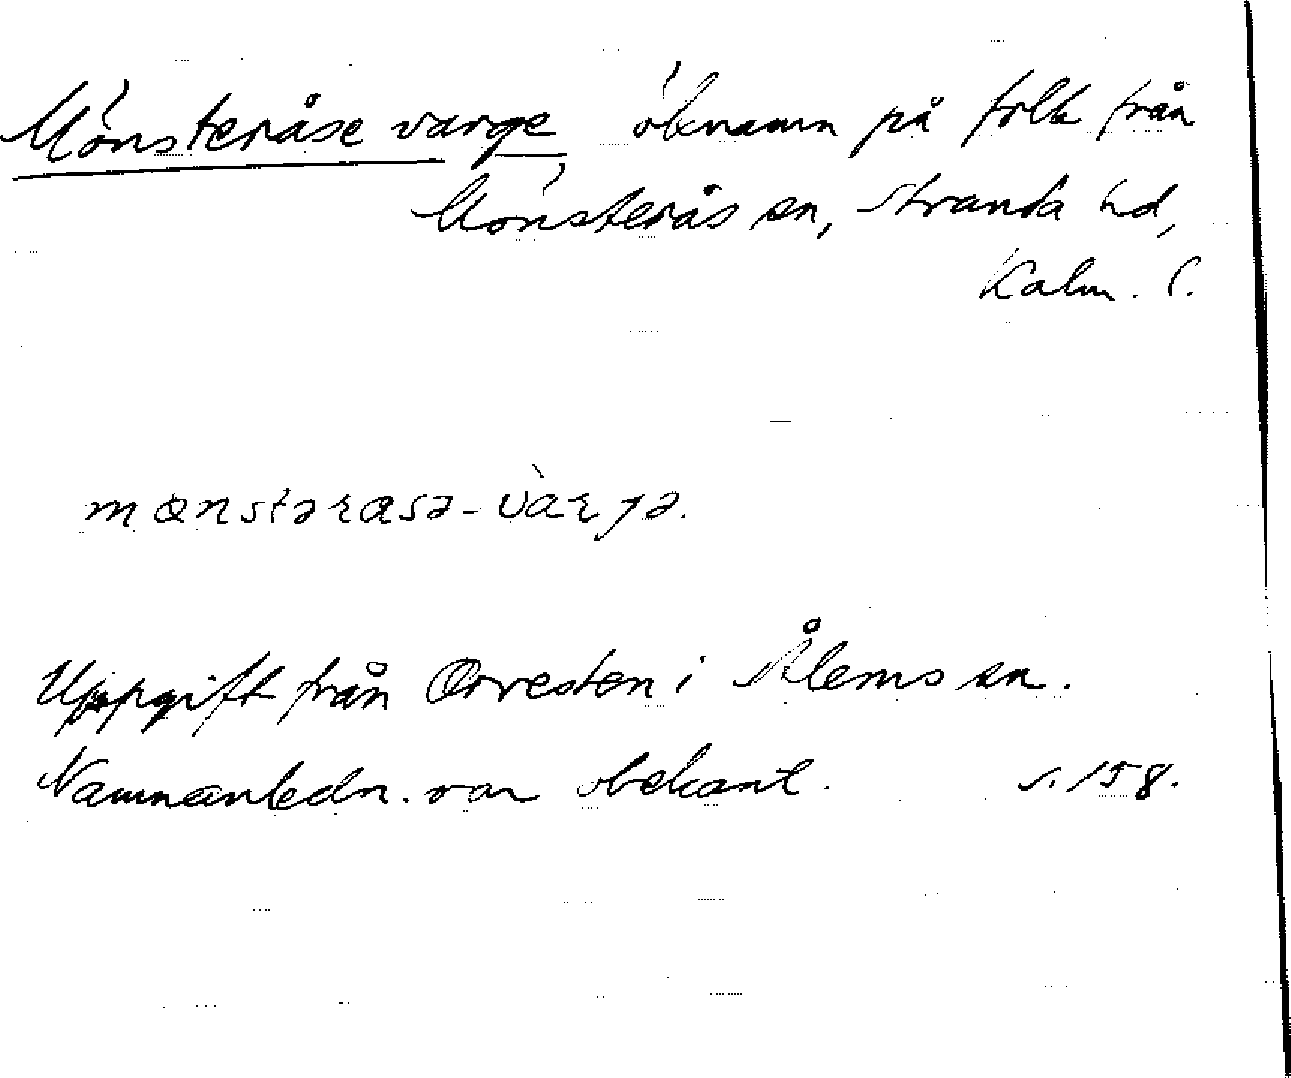 Mönsteråse varge öknamn på folk från
Mönsterås sn, Stranda hd,
Kalm. l.
mɵnstərasə-vàrgə.
Uppgift från Orresten i Ålems sn.
Namnanledn. var obekant. s. 158.